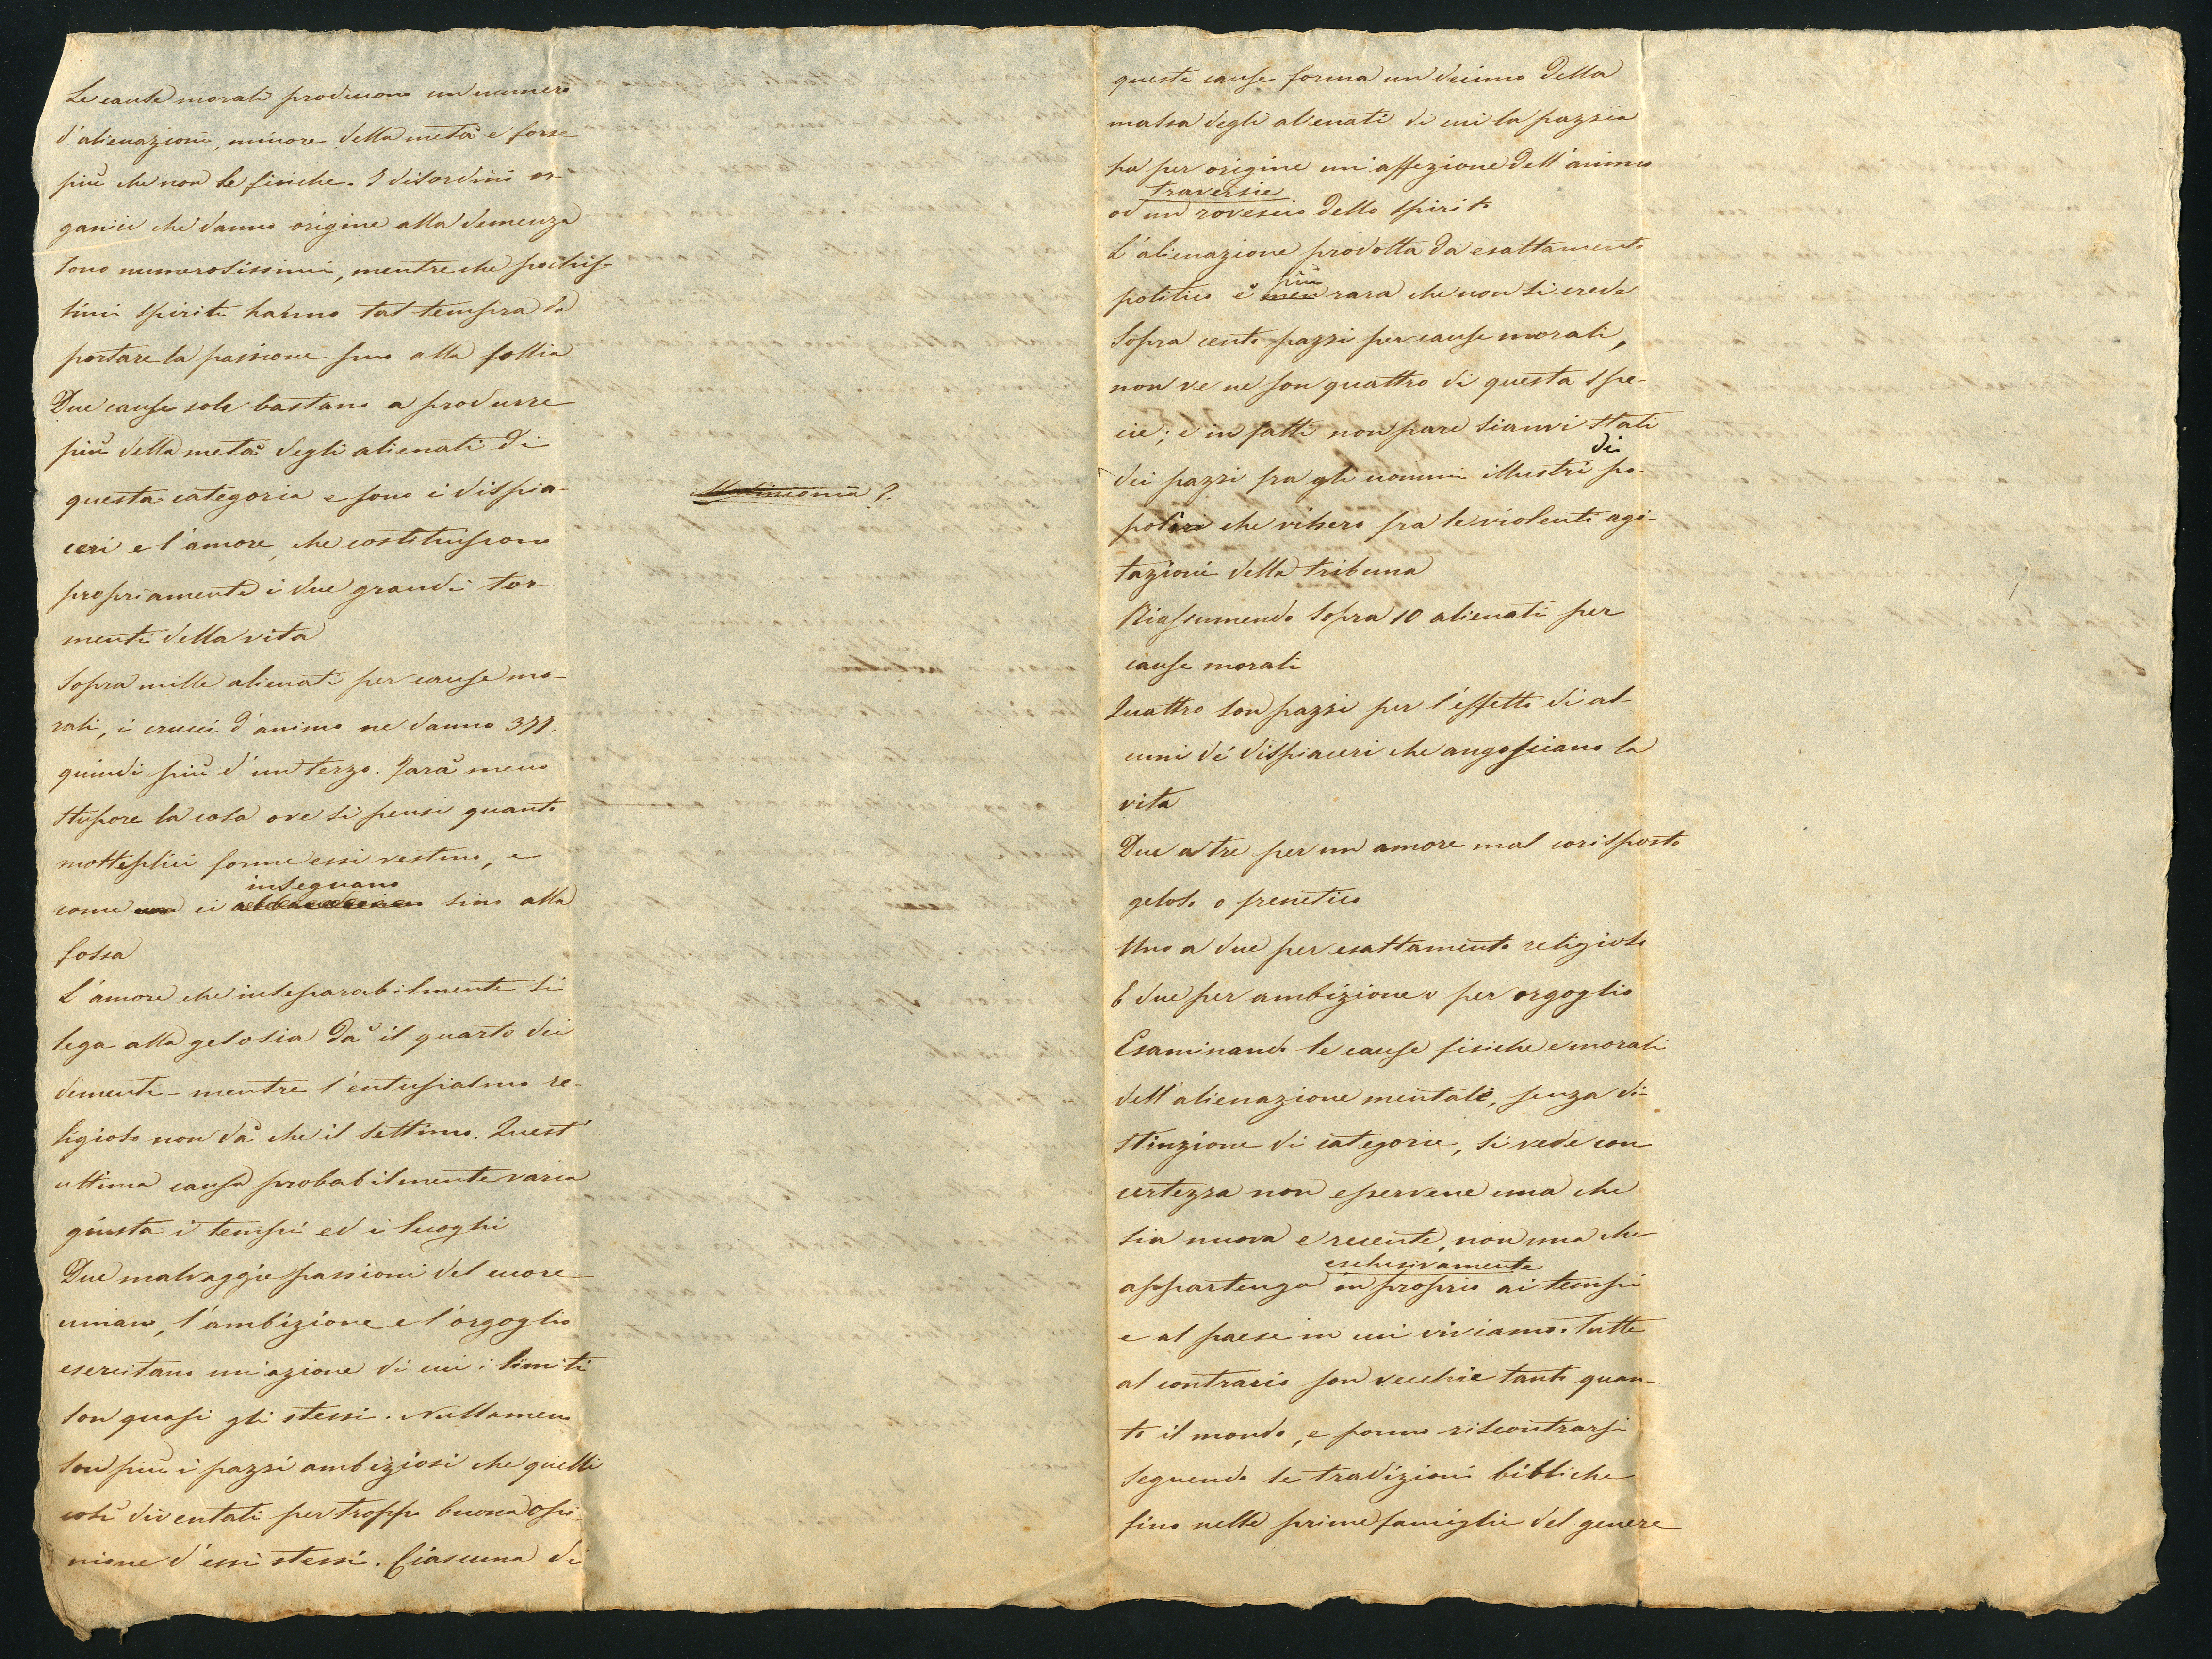 Le cause morali producono un numero
d'alienazioni, minore della metà e forse
più che non le fisiche. I disordini or-
ganici che danno origine alla demenza
sono numerosissimi, mentre che pochis-
simi spiriti hanno tal tempra da
portare la passione fino alla follia.
Due cause sole bastano a produrre
più della metà degli alienati di
questa categoria e sono i dispia-
ceri e l'amore, che costituiscono
propriamente i due grandi tor-
menti della vita
Sopra mille alienati per cause mo-
rali, i crucci d'animo ne danno 377.
quindi più d'un terzo. Farà meno
stupore la cosa ove si pensi quanto
molteplici forme essi vestino, e
inseguano
come non ci sino alla
fossa
L'amore che inseparabilmente si
lega alla gelosia dà il quarto dei
dementi - mentre l'entusiasmo re-
ligioso non dà che il settimo. Quest'
ultima causa probabilmente varia
giusta i tempi ed i luoghi
Due malvaggie passioni del cuore
umano, l'ambizione e l'orgoglio
esercitano un'azione di cui i limiti
son quasi gli stessi. Nullameno
son più i pazzi ambiziosi che quelli
così diventati per troppo buona opi-
nione d'essi stessi. Ciascuna di
?
queste cause forma un decimo della
massa degli alienati di cui la pazzia
ha per origine un'affezione dell'animo
traversie
od un rovescio dello spirito
L'alienazione prodotta da esaltamento
più
politico è men rara che non si crede.
Sopra cento pazzi per cause morali,
non ve ne son quattro di questa spe-
cie; e in fatti non pare sianvi stati
di
dei pazzi fra gli uomini illustri po-
polari che vissero fra le violenti agi-
tazioni della tribuna
Riassumendo sopra 10 alienati per
cause morali
Quattro son pazzi per l'effetto di al-
cuni de' dispiaceri che angosciano la
vita
Due a tre per un amore mal corisposto
geloso o frenetico
Uno a due per esaltamento religioso
E due per ambizione o per orgoglio
Esaminando le cause fisiche e morali
dell'alienazione mentale, senza di-
stinzione di categorie, si vede con
certezza non esservene una che
sia nuova e recente, non una che
esclusivamente
appartenga in proprio ai tempi
e al paese in cui viviamo. Tutte
al contrario son vecchie tanto quan-
to il mondo, e ponno riscontrarsi
seguendo le tradizioni bibliche
fino nelle prime famiglie del genere